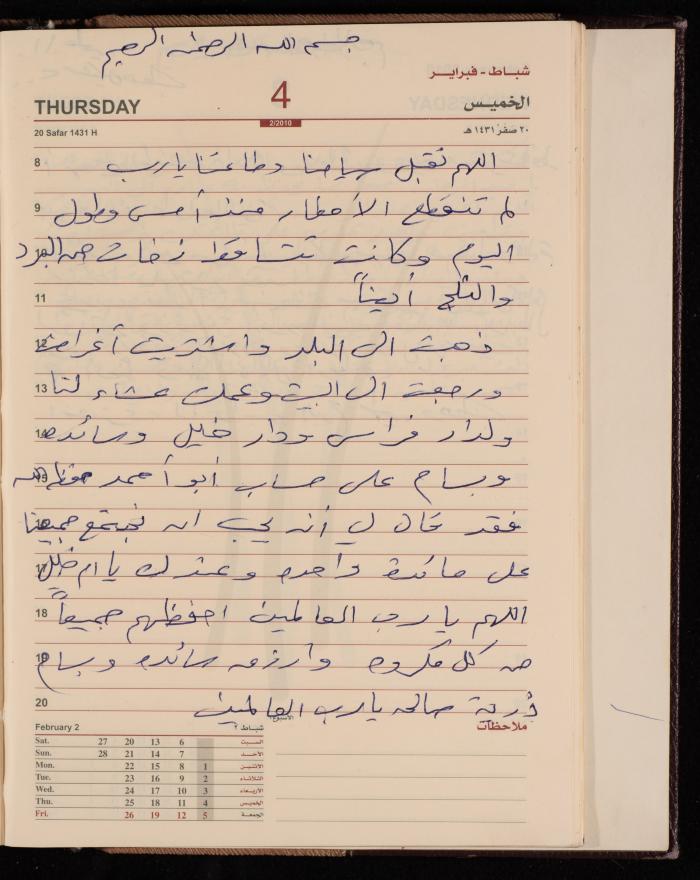 بسم الله الرحمن الرحيم
شباط - فبراير
THURSDAY 4 الخميس
2/2010
20 Safar 1431 H ٢٠ صفر ١٤٣١ هـ
8 اللهم تقبل صيامنا وطاعتنا يارب
9 لم تنقطع الأمطار منذ أمس وطول
اليوم وكانت تتساقط زخات من البرد
11 والثلج أيضاً
12 ذهبت الى البلد واشتريت أغراض
13 ورجعت الى البيت وعملت عشاء لنا
14 ولدار فراس ودار خليل وسائده
15 وبسام على حساب أبو أحمد حفظه الله
16 فقد قال لي أنه يحب ان نجتمع جميعنا
17 على مائدة واحده وعندك يا ام خليل
18 اللهم يارب العالمين احفظهم جميعاً
19 من كل مكروه وارزق سائده وبسام
20 ذرية صالحه يارب العالمين
February 2 الأسبوع شباط ٢ ملاحظات
Sat. 27 20 13 6 السبت
Sun. 28 21 14 7 الأحد
Mon. 22 15 8 1 الأثنين
Tue. 23 16 9 2 الثلاثاء
Wed. 24 17 10 3 الأربعاء
Thu. 25 18 11 4 الخميس
Fri. 26 19 12 5 الجمعة